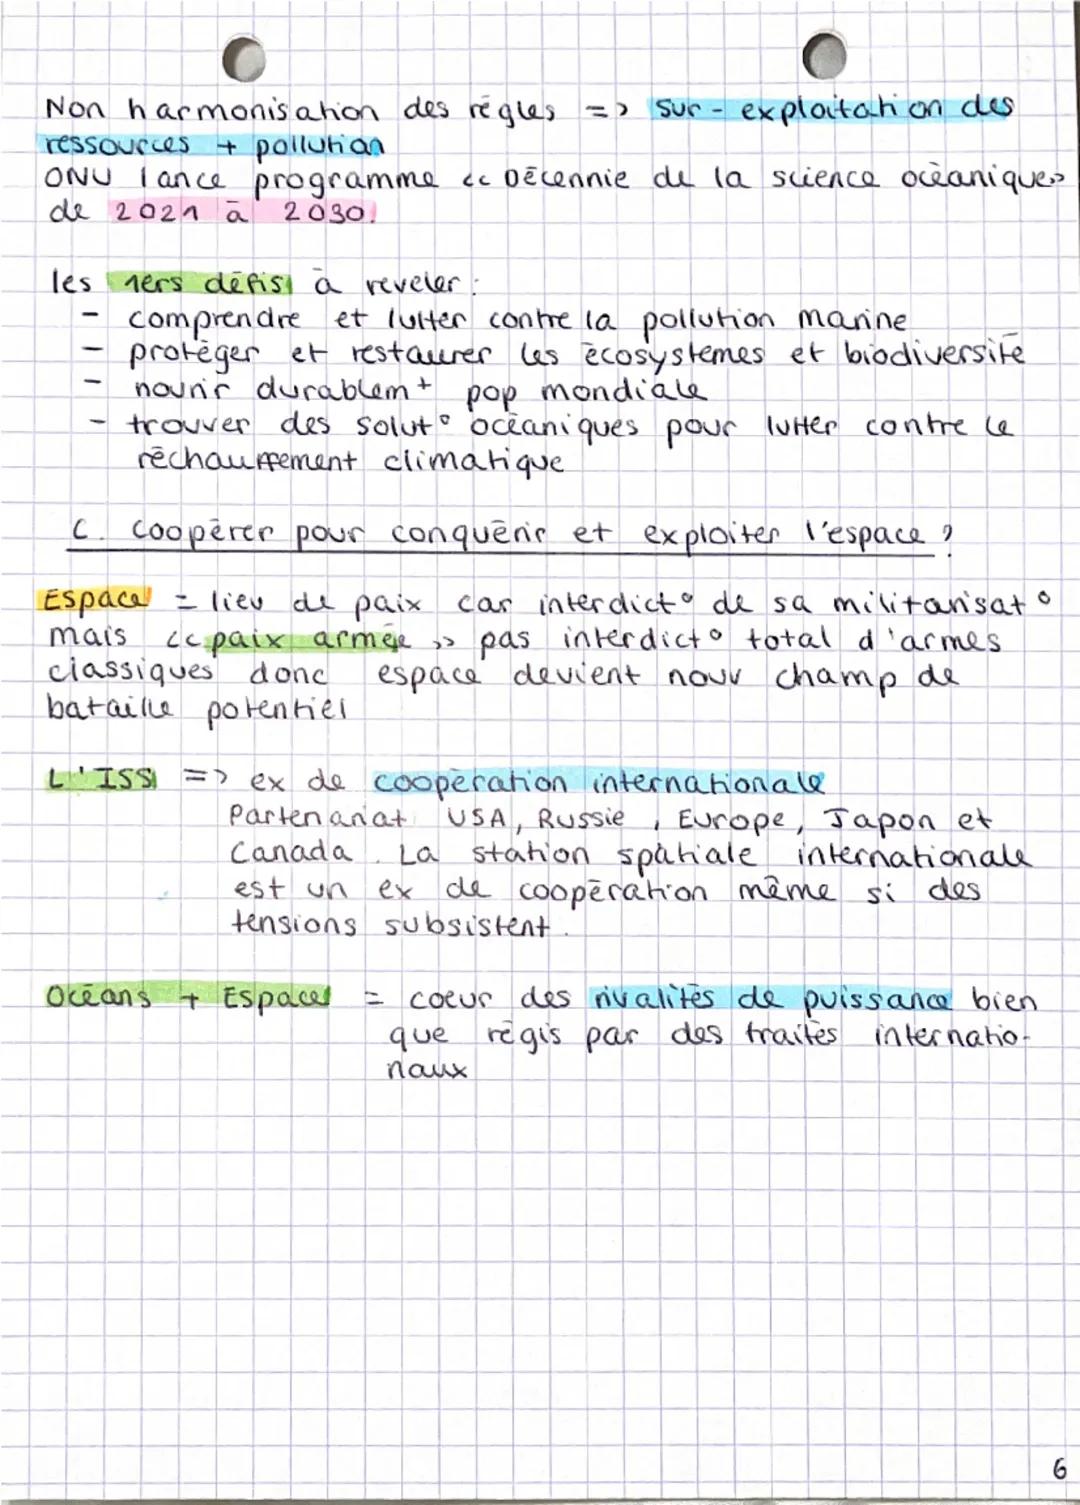 Non harmonisation des règles => sur-exploitation des
ressources + pollution
ONU lance programme << Décennie de la science océanique>>
de 2021 à 2030.
les 1ers défis à reveler :
- comprendre et lutter contre la pollution marine
- protéger et restaurer les écosystèmes et biodiversité
- nourir durablemt pop mondiale
- trouver des solut° océaniques pour lutter contre le
réchauffement climatique
C. Coopérer pour conquérir et exploiter l'espace ?
Espace = lieu de paix car interdict° de sa militarisat°
mais << paix armée >> pas interdict° total d'armes
classiques donc espace devient nouv champ de
bataille potentiel
L'ISS => ex de coopération internationale
Partenariat USA, Russie, Europe, Japon et
Canada. La station spatiale internationale
est un ex de coopération même si des
tensions subsistent.
Océans + Espace = coeur des rivalités de puissance bien
que régis par des traités internatio-
naux
6